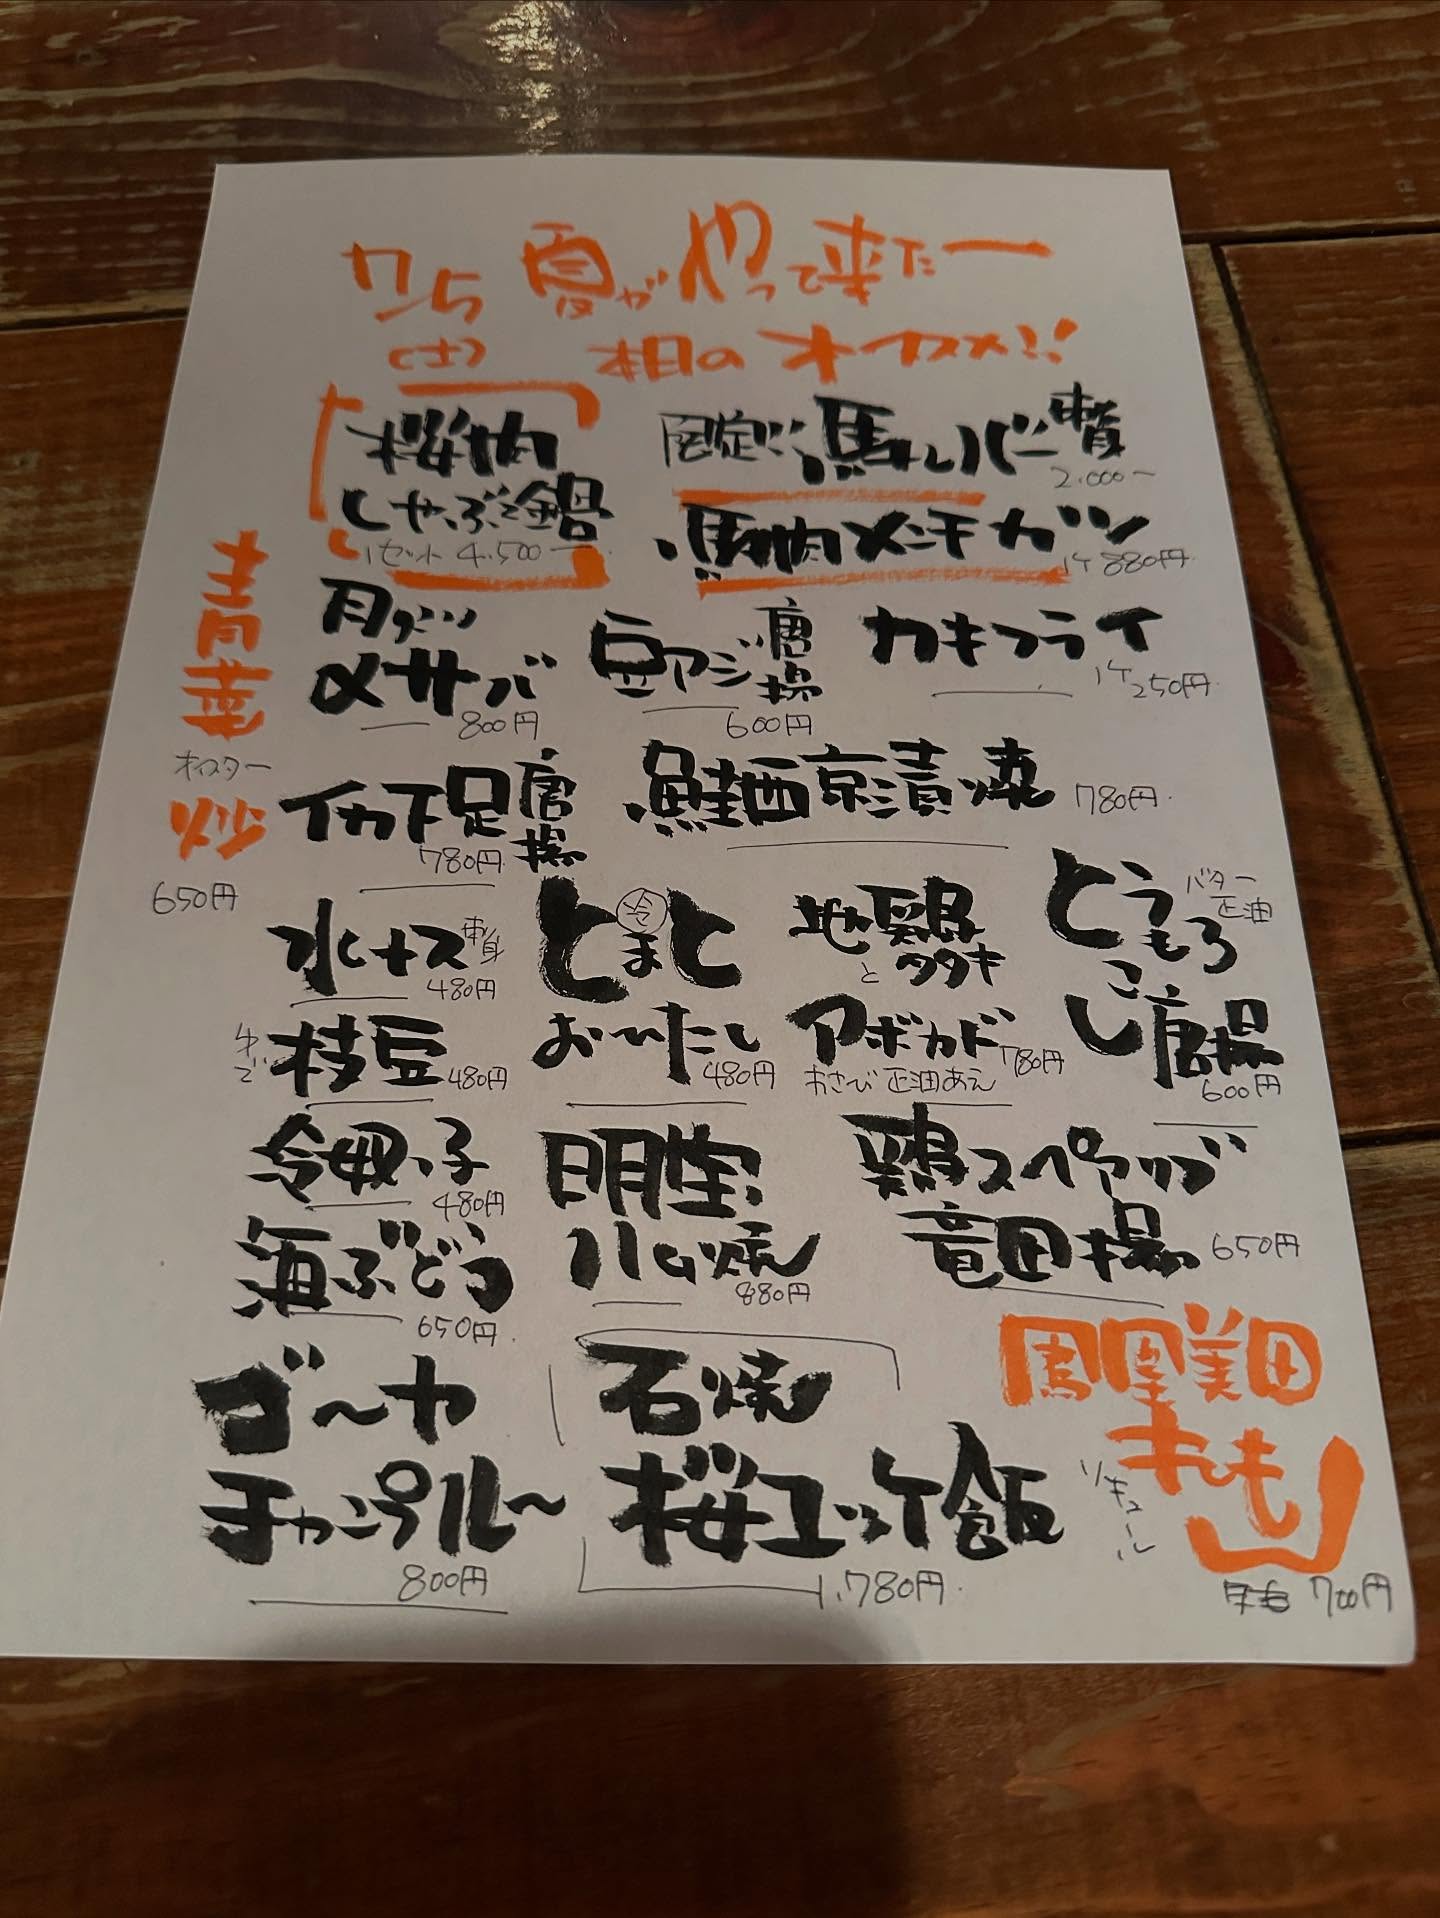 7/5 夏がやって来たー
(土) 本日のオススメ!!
桜肉
しゃぶ鍋
1セット 4,500ー
限定!! 馬レバー
2,000ー
馬肉メンチカツ
1ケ 880円
青菜
オイスター
炒
650円
〆サバ
800円
豆アジ唐揚
600円
カキフライ
1ケ250円
イカ下足唐揚
780円
鮭西京漬焼 780円
水ナス
480円
冷
とまと
おーひたし
480円
地鶏タタキ
と
アボカド
わさび正油あえ 780円
とうもろこし唐揚
バター
正油
600円
ゆで
枝豆
480円
令母っ子
480円
明宝
ハム焼
880円
鶏スペアリブ
竜田揚 650円
海ぶどう
650円
ゴーヤ
チャンプルー
800円
石焼
桜ユッケ飯
1,780円
鳳凰美田
リキュール
700円